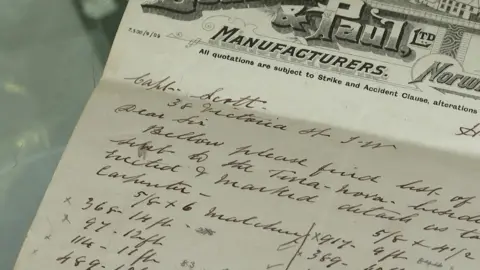 & Paul, LTD
7,500/9/09
MANUFACTURERS.
Norw
All quotations are subject to Strike and Accident Clause, alterations
Capt. Scott.
38 Victoria St S.W
Dear Sir
Bellow please find list of
to the Terra-Nova.
& Marked details as to
Carpenter-
5/8 x 6 Matching
5/8 x 4 1/2
x 368- 14ft-
x 917- 9ft
x 97- 12ft
x 389
114- 11ft-
489-